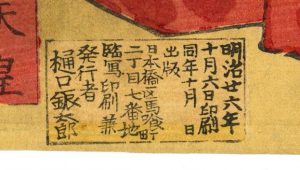 明治廿六年
十月六日印刷
同年十月 日
出版
日本橋区馬喰町
二丁目七番地
臨寫印刷兼
発行者
樋口銀太郎
天皇